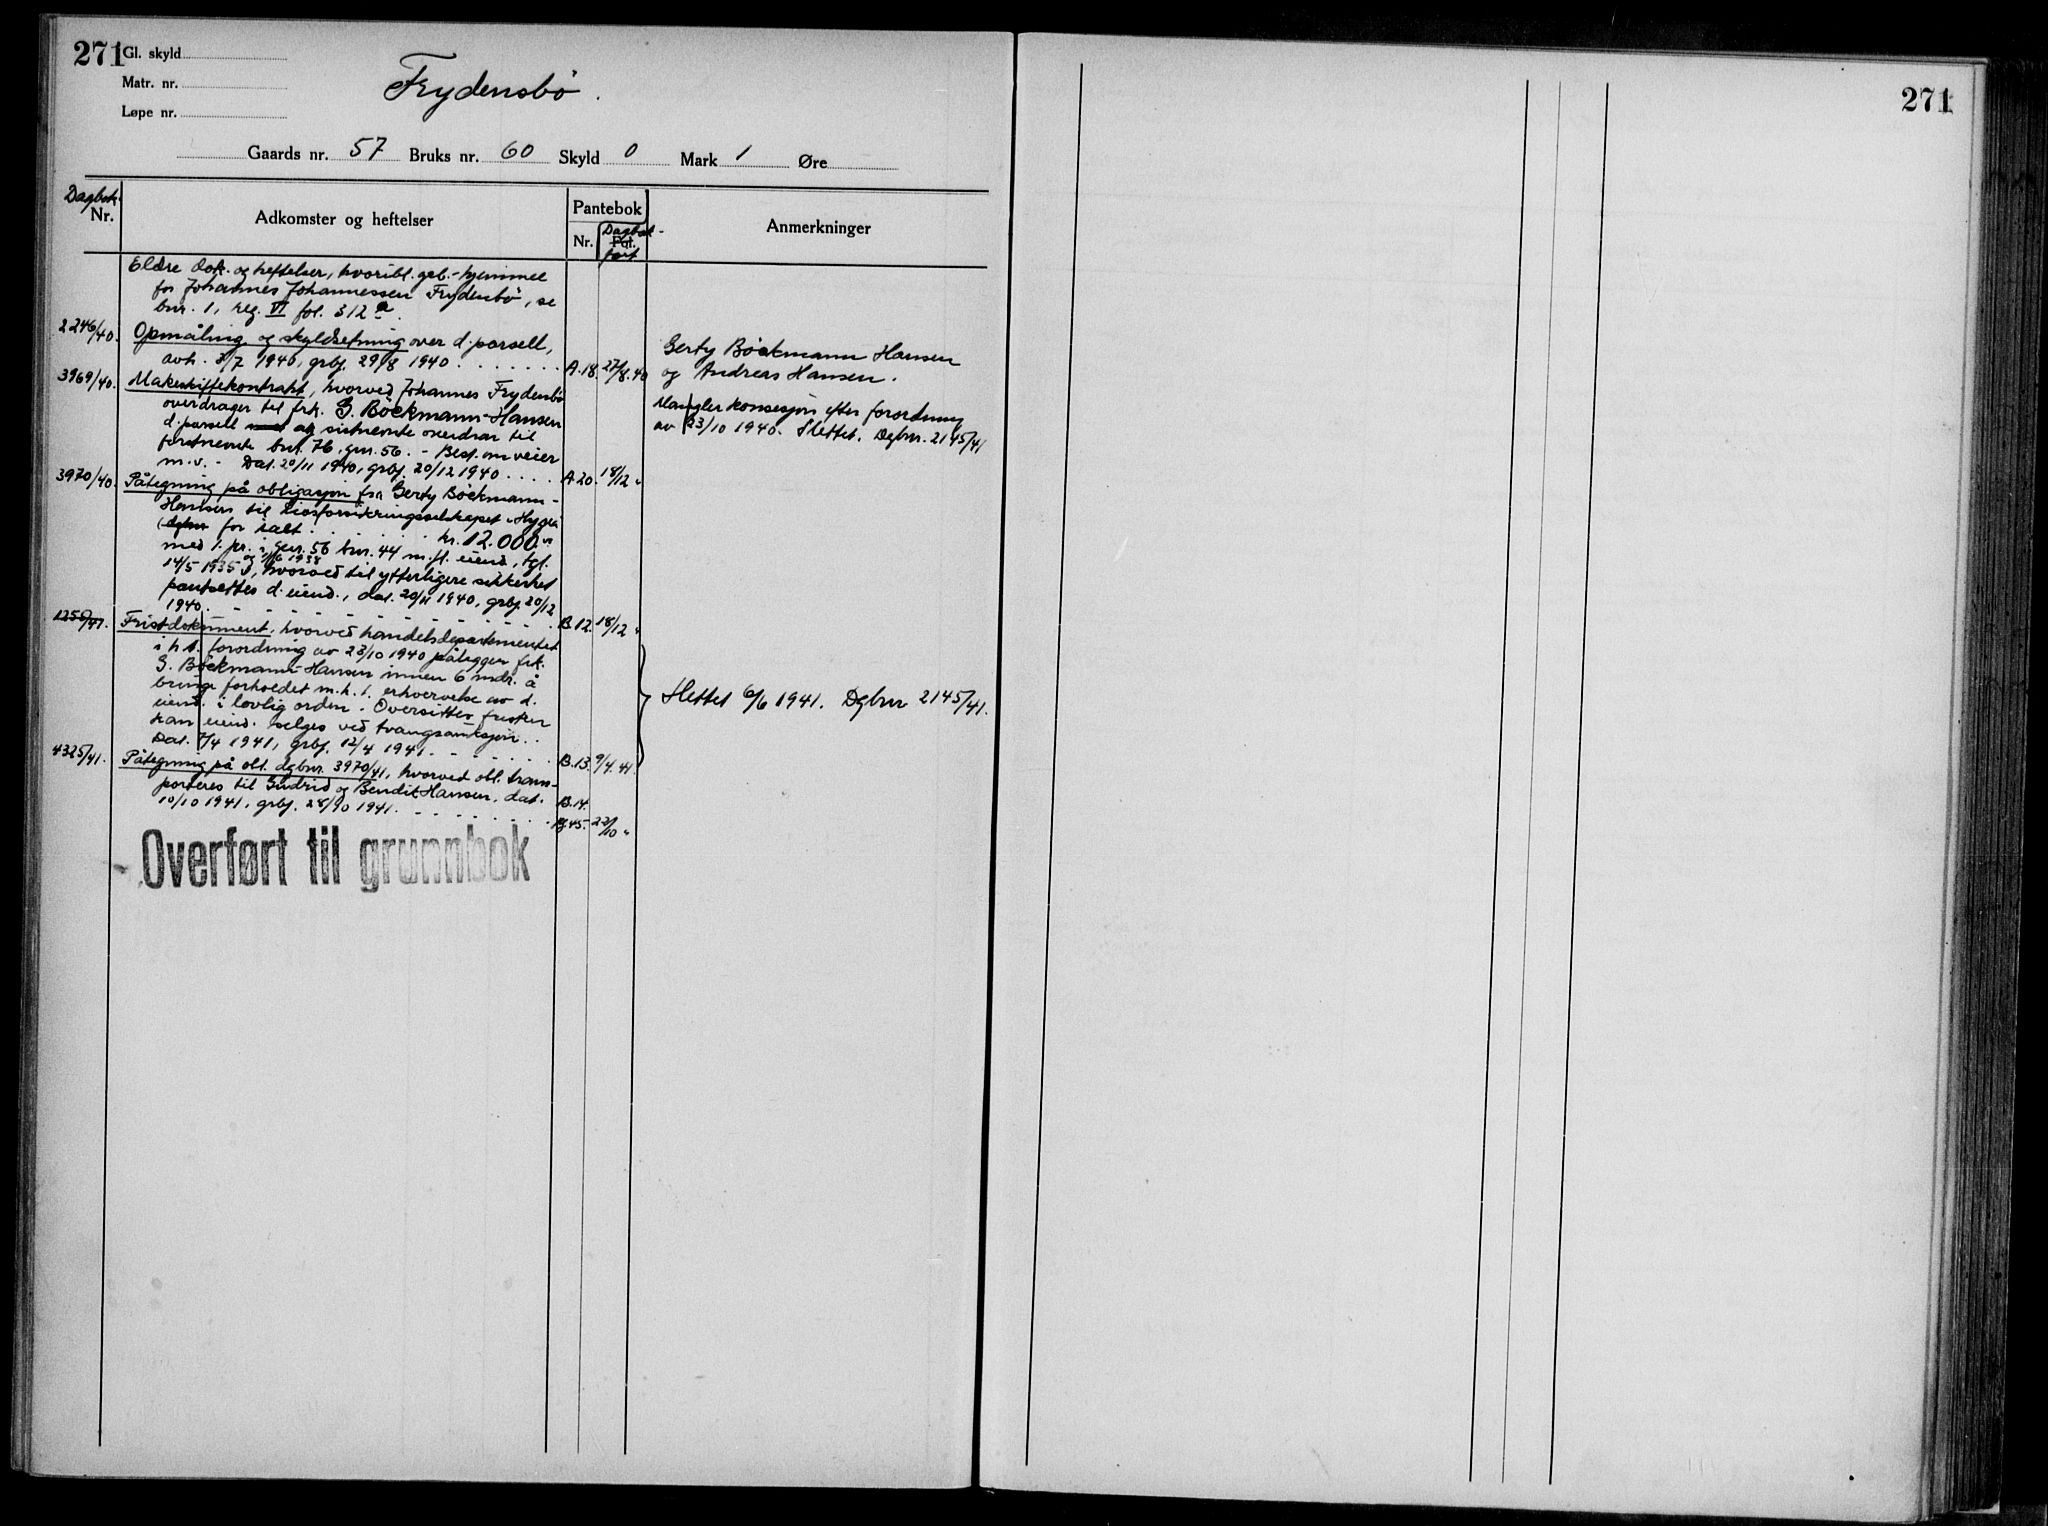 271 Gl. skyld
Matr. nr.
Løpe nr.
Frydensbø.
Gaards nr. 57 Bruks nr. 60 Skyld 0 Mark 1 Øre
Dagbok. Nr.
Adkomster og heftelser
Pantebok
Nr.
Fol.
Dagbok-
ført
Anmerkninger
Eldre dok. og heftelser, hvoribl. grb.-hjemmel
for Johannes Johannessen Frydensbø, se
bnr. 1, reg. VI fol. 312 a.
2246/40. Opmåling og skyldsetning over d. parsell,
avh. 3/7 1940, grbf. 29/8 1940 . . . . . . . A.18. 27/8.40
Gerty Böckmann Hansen
og Andreas Hansen.
3969/40. Makeskiftekontrakt, hvorved Johannes Frydensbø
overdrager til frk. G. Böckmann-Hansen
d. parsell og sistnevnte overdrar til
førstnevnte bnr. 76, gnr. 56. - Best. om veier
m.v. - Dat. 20/11 1940, grbf. 20/12 1940 . . . . A.20. 18/12 "
Mangler konsesjon efter forordning
av 23/10 1940. Slettet. Dgbnr. 2145/41
3970/40. Påtegning på obligasjon fra Gerty Böckmann-
Hansen til Livsforsikringsselskapet "Hygea"
for ialt . . . . . . kr. 12.000.00
med 1. pr. i gnr. 56 bnr. 44 m.fl. eiend., tgl.
14/5 1935 og 1938, hvorved til ytterligere sikkerhet
pantsettes d. eiend., dat. 20/11 1940, grbf. 20/12
1940. - - - - - - - - B.12. 18/12 "
1256/41. Fristdokument, hvorved handelsdepartementet
i h.t. forordning av 23/10 1940 pålegger frk.
G. Böckmann-Hansen innen 6 mdr. å
bringe forholdet m.h.t. erhvervelse av d.
eiend. i lovlig orden. Oversittes fristen
kan eiend. selges ved tvangsauksjon. .
Dat. 7/4 1941, grbf. 12/4 1941. - - . . . . . B.13. 9/4.41.
Slettet 6/6 1941. Dgbnr 2145/41.
4325/41. Påtegning på obl. dgbnr. 3970/41, hvorved obl. trans-
porteres til Gudrid og Bendit Hansen, dat. B.14.
10/10 1941, grbf. 28/10 1941. - - - - - - - 45. 22/10 "
Overført til grunnbok
271